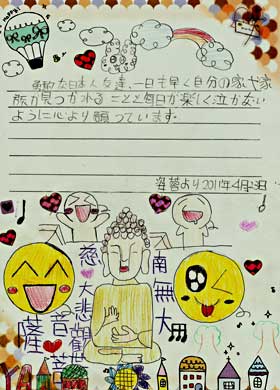 勇敢な日本人友達、一日も早く自分の家や家
族が見つかれることと毎日が楽しく泣かない
ように心より願っています.
より2011年4月2日
南無大
慈大悲觀世
音菩薩